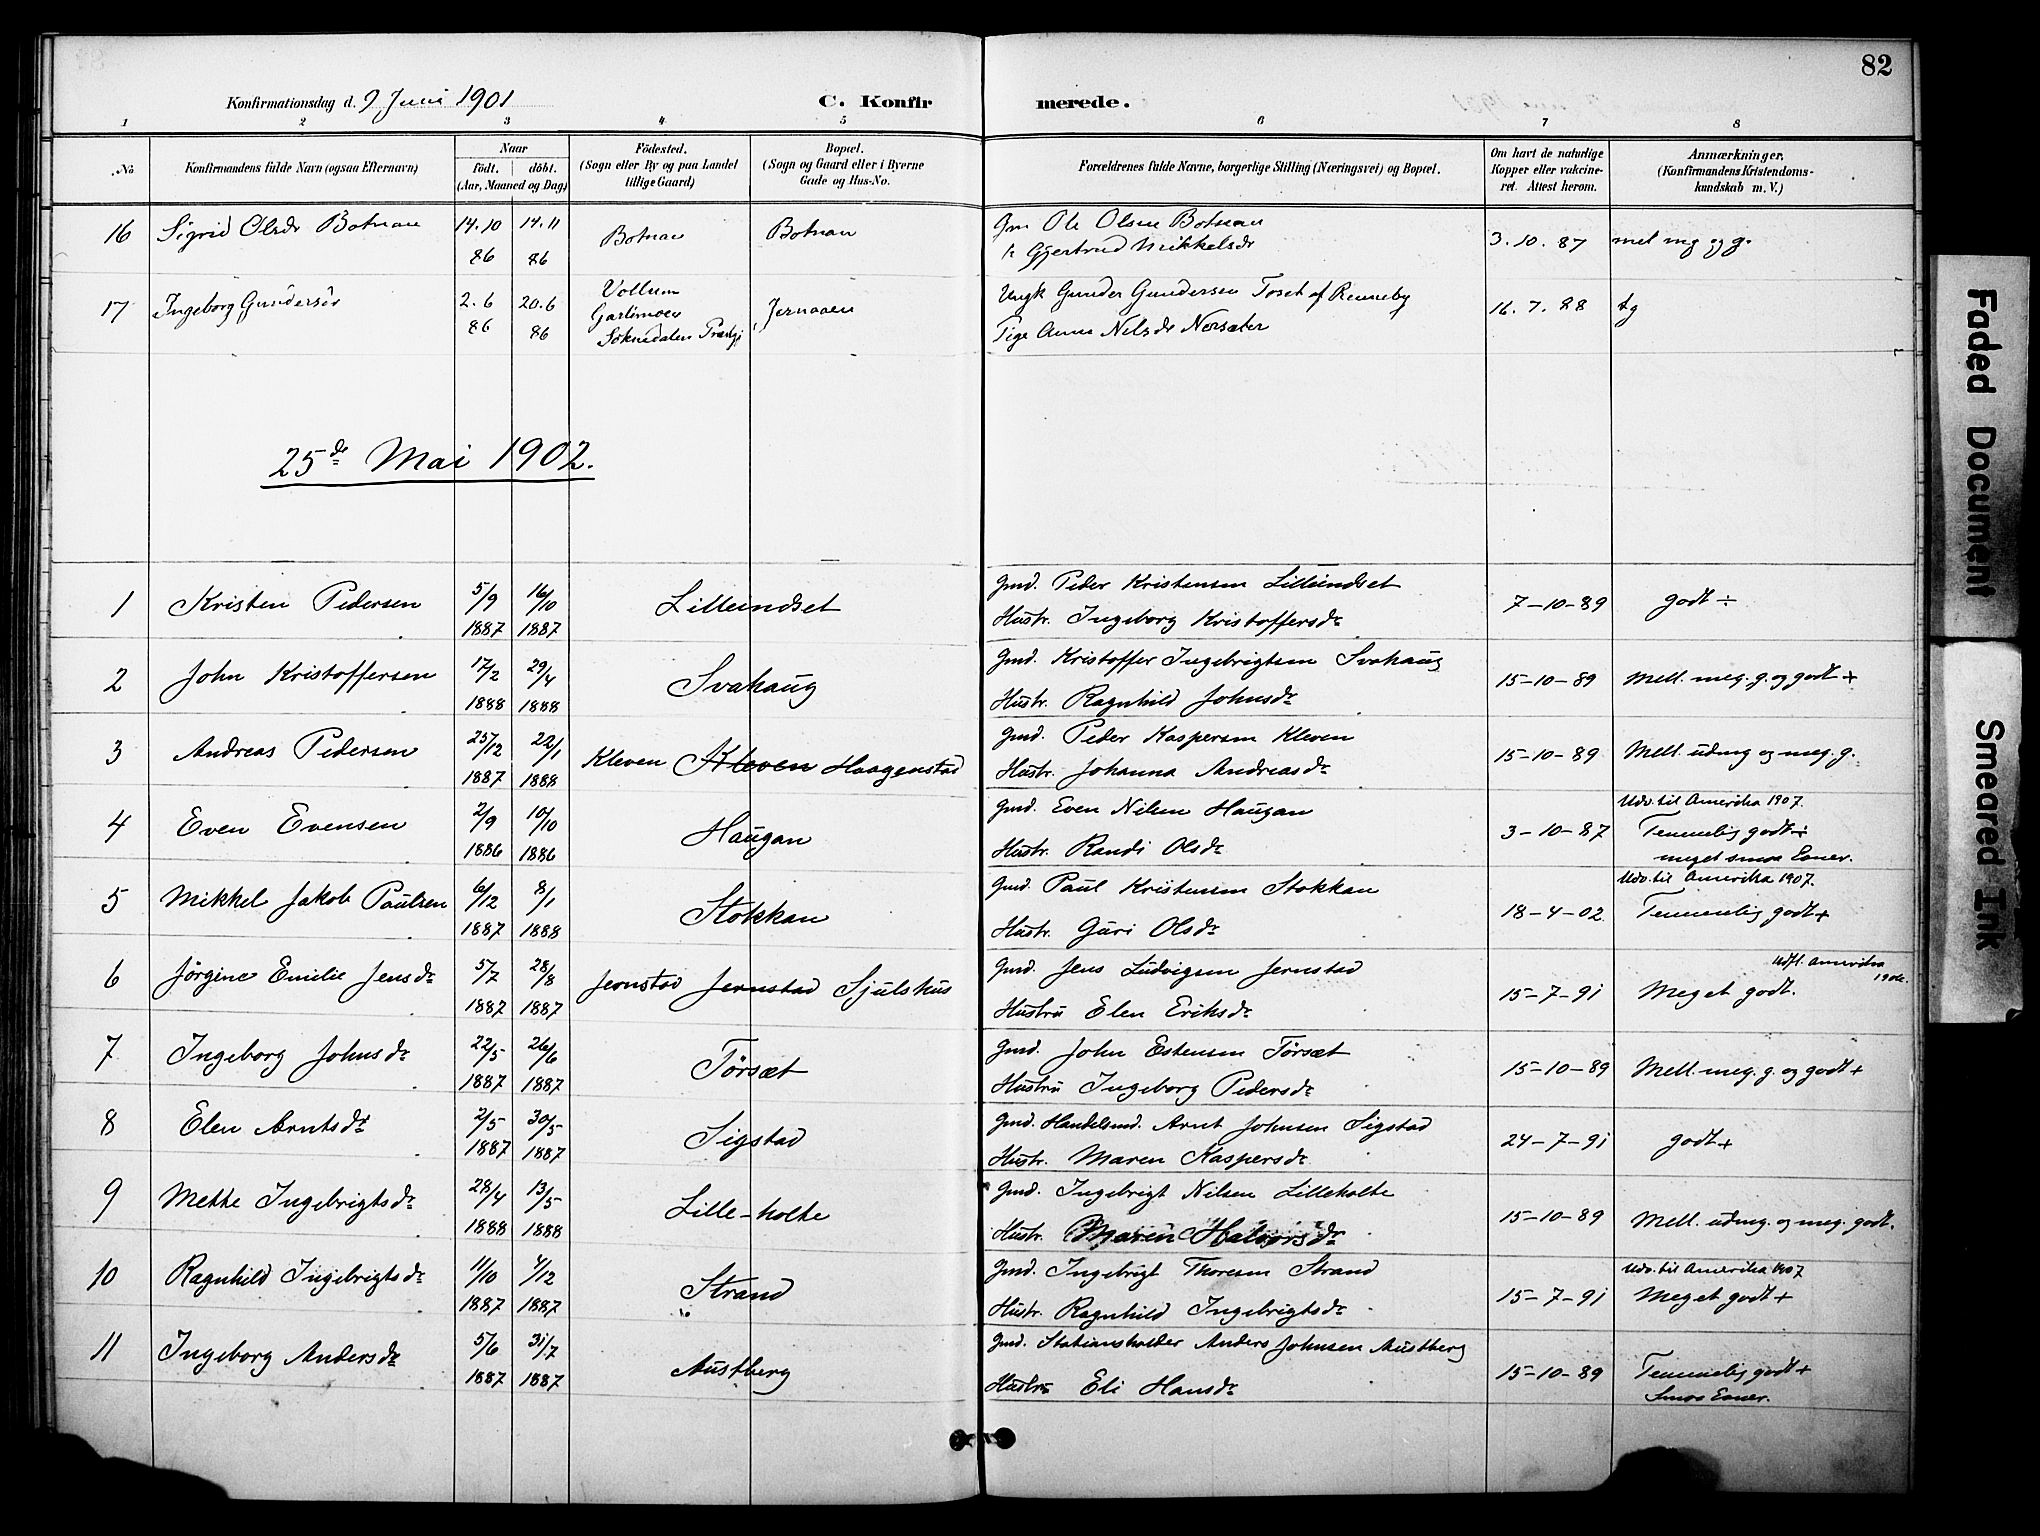 82
Konfirmationsdag d. 9 Juni 1901 C. Konfirmerede.
1 2 3 4 5 6 7 8
No Konfirmandens fulde Navn (ogsaa Efternavn) Naar født. døbt. (Aar, Maaned og Dag) Fødested. (Sogn eller By og paa Landet tillige Gaard) Bopæl. (Sogn og Gaard eller i Byerne Gade og Hus-No. Forældrenes fulde Navne, borgerlige Stilling (Næringsvei) og Bopæl. Om havt de naturlige Kopper eller vakcineret. Attest herom. Anmærkninger. (Konfirmandens Kristendomskundskab m. V.)
16 Sigrid Olsdr Botnan 14.10 86 14.11 86 Botnan Botnan Gm Ole Olsen Botnan
k Gjertrud Mikkelsdr 3.10.87 mel mg og g.
17 Ingeborg Gundersdr 2.6 86 20.6 86 Vollum
Garlimoen
Soknedalen Præstgj Jernaaen Ungk Gunder Gundersen Toset af Renneby
Pige Anne Nelsdr Norsæter 16.7.88 tg
25de Mai 1902.
1 Kristen Pedersen 5/9 1887 16/10 1887 Lilleindset Gmd. Peder Kristensen Lilleindset
Hustr. Ingeborg Kristoffersdr 7-10-89 godt ÷
2 John Kristoffersen 17/2 1888 29/4 1888 Svahaug Gmd. Kristoffer Ingebrigtsen Svahaug
Hustr. Ragnhild Johnsdr 15-10-89 Mell. meg. g. og godt +
3 Andreas Pedersen 25/12 1887 22/1 1888 Kleven Kleven Haagenstad Gmd. Peder Kaspersen Kleven
Hustr. Johanna Andreasdr 15-10-89 Mell. udmg og meg. g.
4 Even Evensen 2/9 1886 10/10 1886 Haugan Gmd. Even Nilsen Haugan
Hustr. Randi Olsdr 3-10-87 Udv. til Amerika 1907.
Temmelig godt ÷
meget smaa Evner.
5 Mikkel Jakob Paulsen 6/12 1887 8/1 1888 Stokkan Gmd. Paul Kristensen Stokkan
Hustr. Guri Olsdr 18-4-02 Udv. til Amerika 1907.
Temmelig godt +
6 Jørgine Emilie Jensdr 5/7 1887 28/8 1887 Jernstad Jernstad Sjulshus Gmd. Jens Ludvigsen Jernstad
Hustru Elen Eriksdr 15-7-91 Udfl. Amerika
Meget godt.
7 Ingeborg Johnsdr 22/5 1887 26/6 1887 Tørsæt Gmd. John Estensen Tørsæt
Hustru Ingeborg Pedersdr 15-10-89 Mell. meg. g. og godt +
8 Elen Arntsdr 2/5 1887 30/5 1887 Sigstad Gmd. Handelsmd. Arnt Johnsen Sigstad
Hustr. Maren Kaspersdr 24-7-91 godt +
9 Mette Ingebrigtsdr 28/4 1888 13/5 1888 Lille-holte Gmd. Ingebrigt Nilsen Lilleholte
Hustr. Maren Halvorsdr 15-10-89 Mell. udmg. og meg. godt.
10 Ragnhild Ingebrigtsdr 11/10 1887 4/12 1887 Strand Gmd. Ingebrigt Thoresen Strand
Hustr. Ragnhild Ingebrigtsdr 15-7-91 Udv. til Amerika 1907
Meget godt +
11 Ingeborg Andersdr 5/6 1887 31/7 1887 Austberg Gmd. Stationsholder Anders Johnsen Austberg
Hustru Eli Hansdr 15-10-89 Temmelig godt +
Smaa Evner.
Faded Document
Smeared Ink